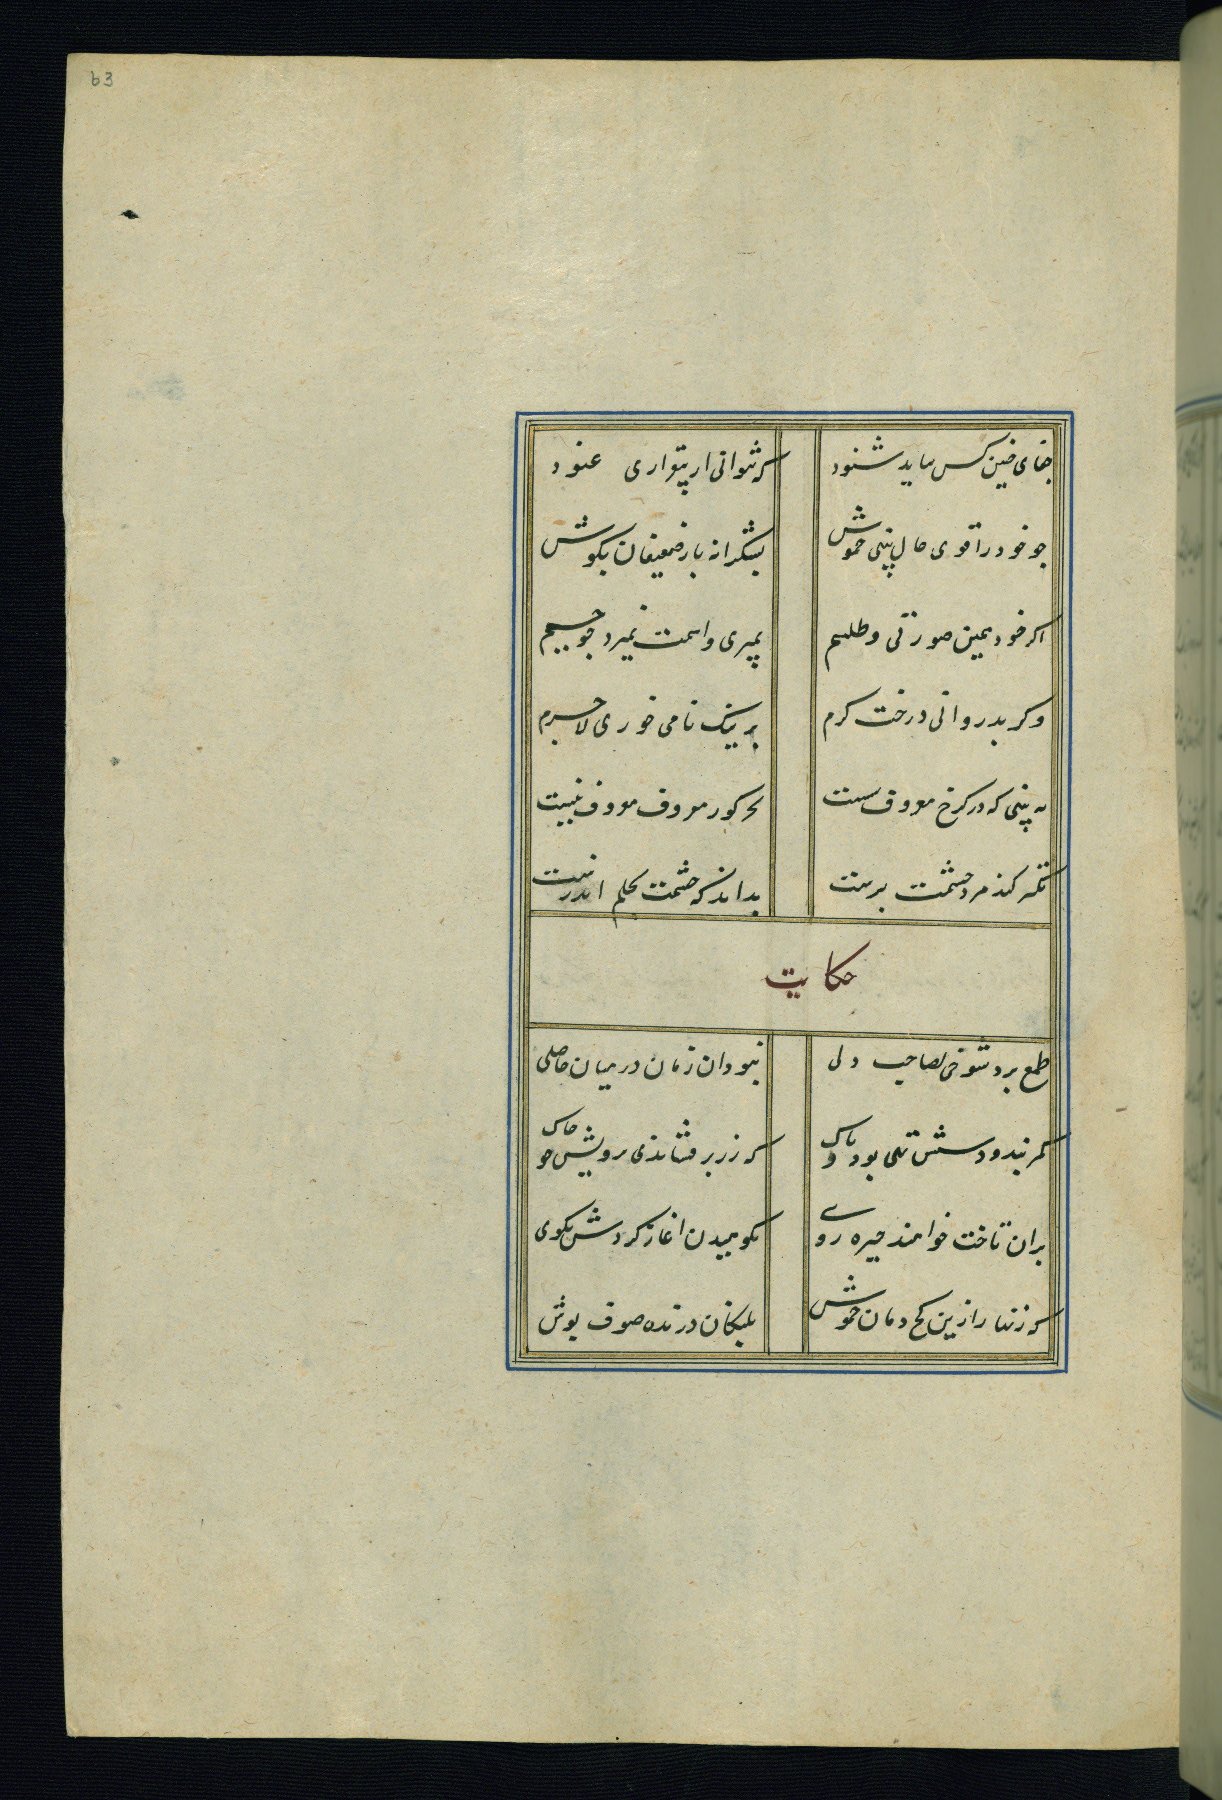 63
جفای چنین کس بباید شنود
که نتوانی از بیقراری غنود
چو خود را قوی حال بینی خموش
بشکرانه بار ضعیفان بکوش
اگر خود همین صورتی و طلسم
بمیری و اسمت نمیرد چو جسم
و کر بدروانی درخت کرم
بر نیک نامی خوری لاجرم
نه بینی که در کرخ معروفست
بجز کور معروف معروف نیست
تکبر کند مرد حشمت پرست
نداند که حشمت بحلم اندرست
حکایت
طمع برد شوخی بصاحب دلی
نبود ان زمان در میان حاصلی
کمربند و دستش تهی بود و پاک
که زر بر فشاندی برویش جو خاک
بران تاخت خواهنده خیره روی
نکوهیدن اغاز کردش بکوی
که زنهار ازین کژدمان خموش
پلنکان درنده صوف پوش